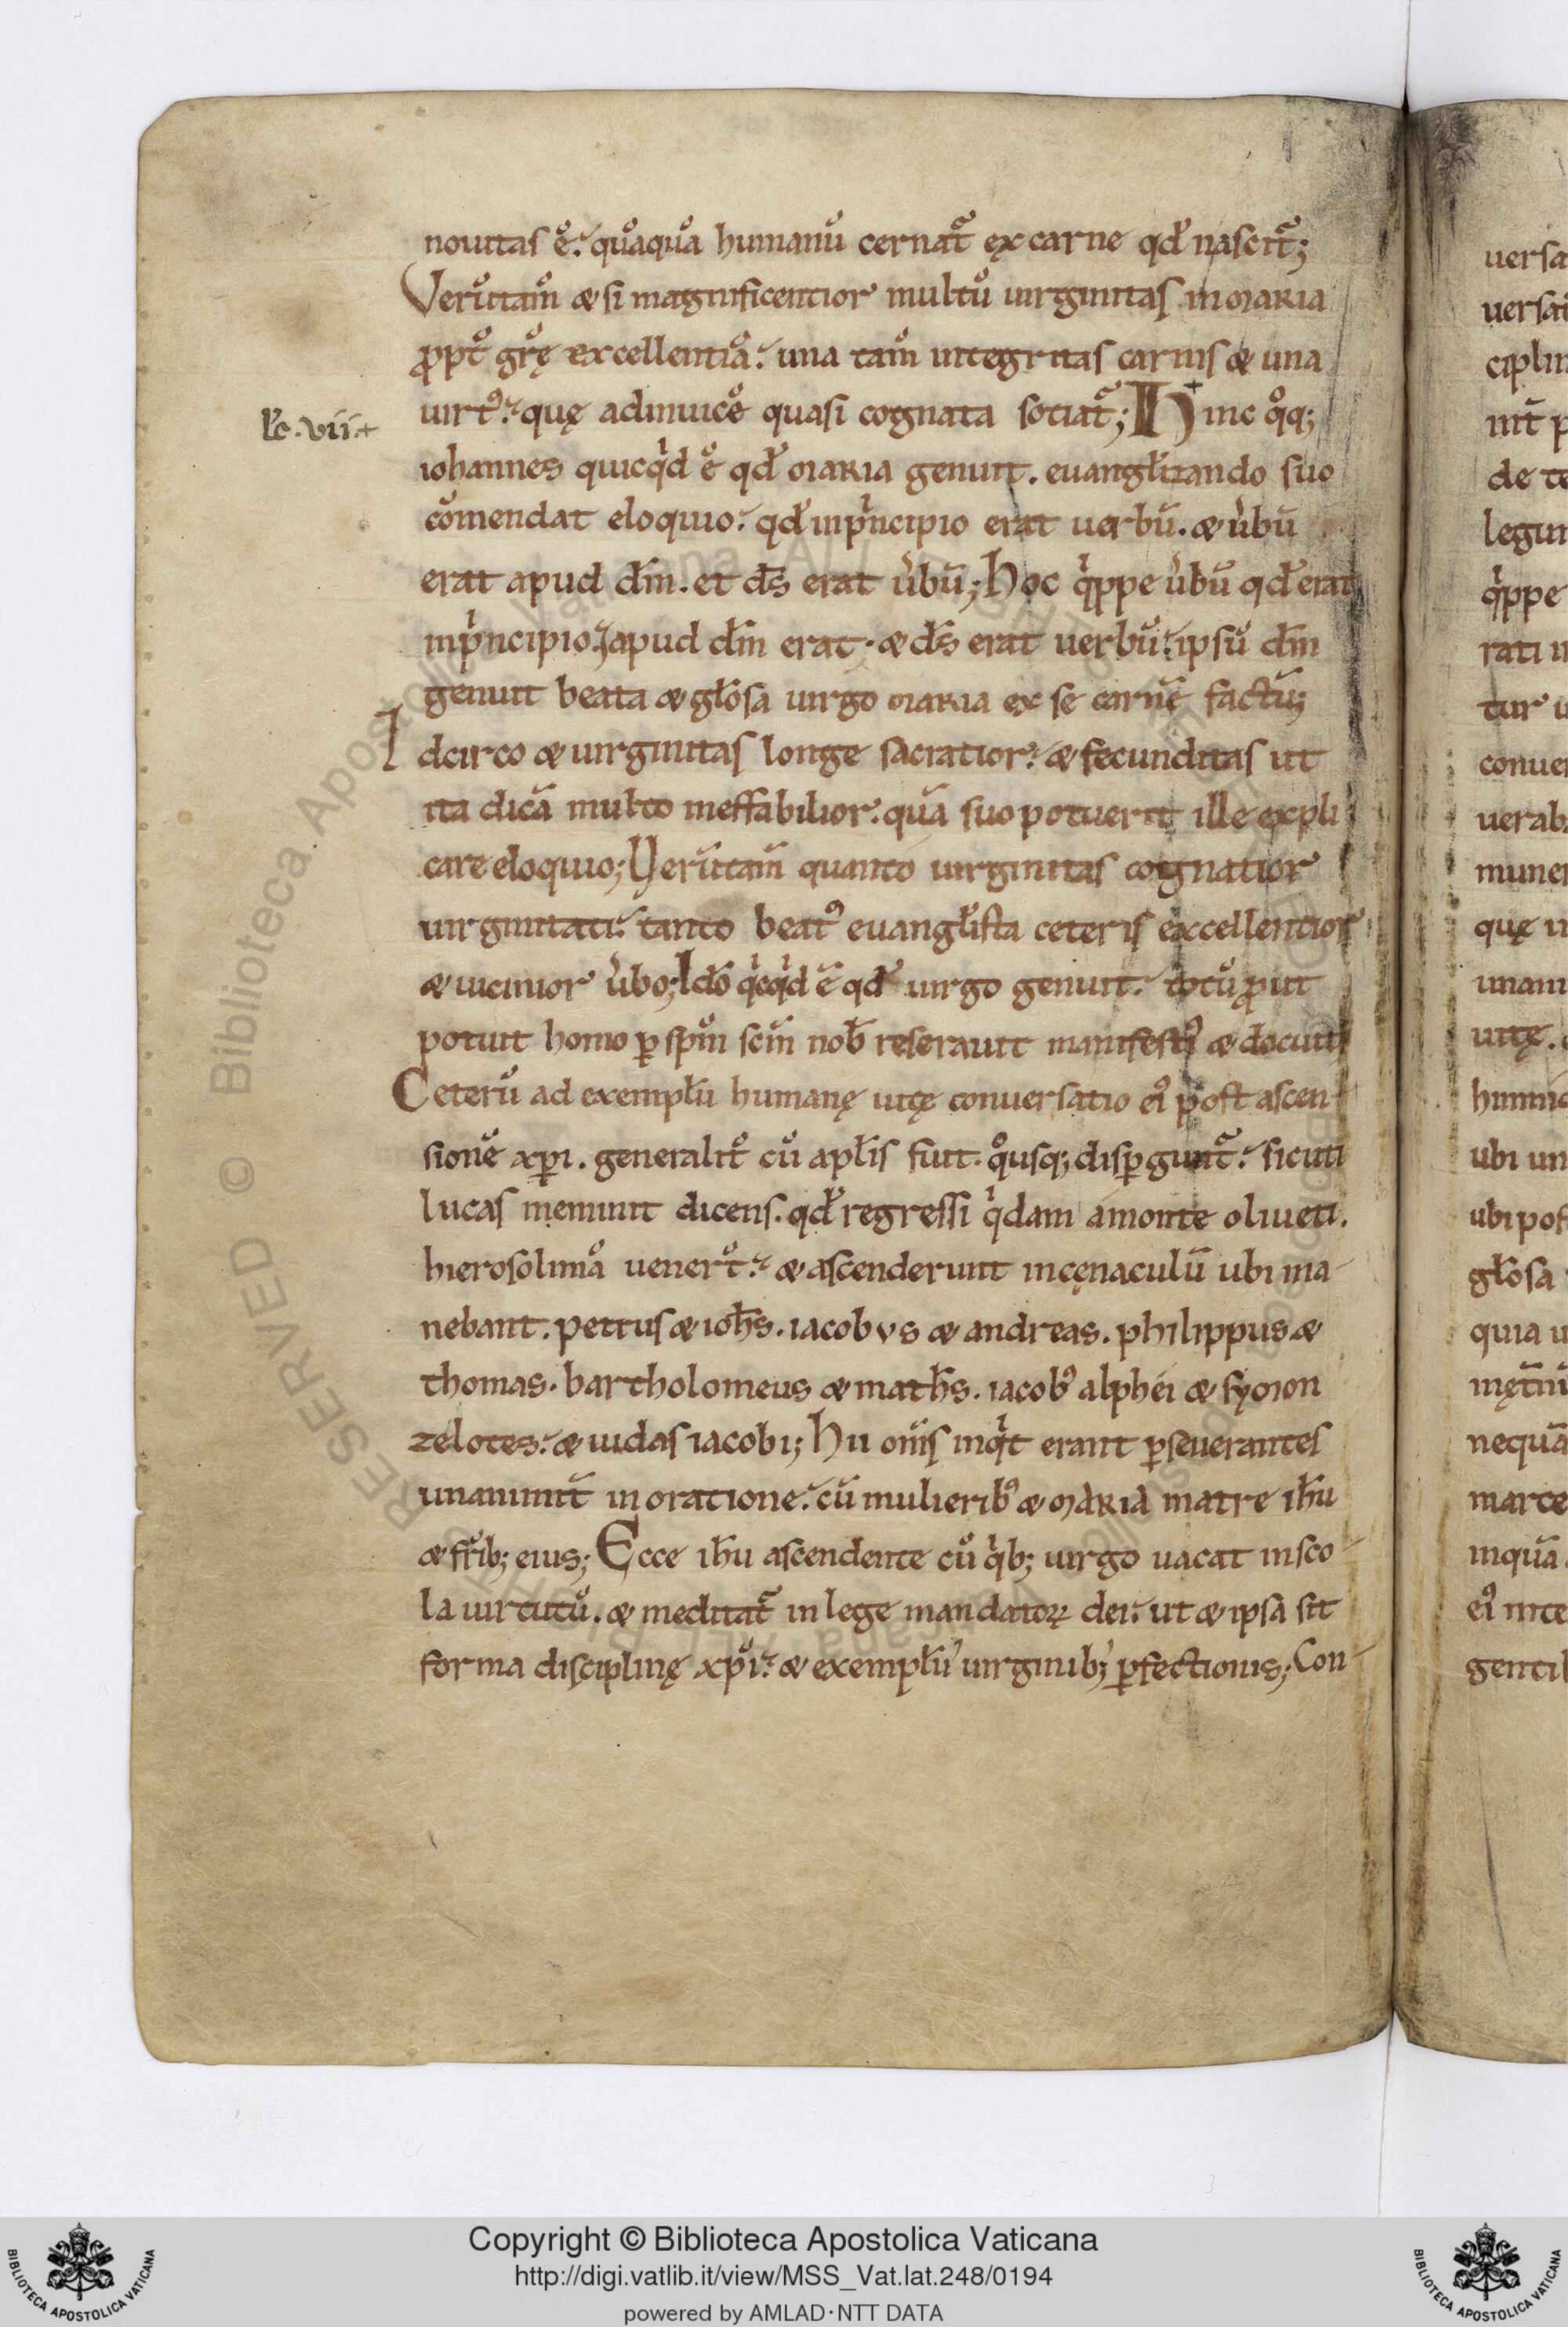 nouitas ē. quāquā humanū cernat̄ ex carne qđ nascit̄;
Verūtam̄ & si magnificentior multū uirginitas in maria
ꝓpt̄ gr̄ę excellentiā. una tam̄ integritas carnis & una
uirtꝰ. quę adinuicē quasi cognata sotiat̄; Hinc qͦq;
lc̄.vii.+
iohannes quicqͥd ē qđ maria genuit. euangłizando suo
cōmendat eloquio. qđ inpͥncipio erat uerbū. & u̓bū
erat apud dm̄. et ds̄ erat u̓bū; Hoc qͥppe u̓bū qđ erat
inpͥncipio. apud dm̄ erat. & ds̄ erat uerbū. ipsū dm̄
genuit beata & głosa uirgo maria ex se carnē factū;
Idcirco & uirginitas longe sacratior. & fecunditas ut
ita dicā multo ineffabilior. quā suo potuerit ille expli
care eloquio; Verūtam̄ quanto uirginitas cognatior
uirginitati. tanto beatꝰ euangłista ceteris excellentior
& uicinior u̓bo; Idō qͥcqͥd ē qđ uirgo genuit. totū ꝓut
potuit homo ꝑ spm̄ scm̄ nob̄ reserauit manifestꝰ & docuit
Ceterū ad exemplū humanę uitę conuersatio eiꝰ post ascen
sionē xp̄i. generalit̄ cū apłis fuit. qͦusq; disꝑgunt̄. sicuti
lucas meminit dicens. qđ regressi qͥdam á monte oliueti.
hierosolimā uenert̄. & ascenderunt incęnaculū ubi ma-
nebant. petrus & ioħs. iacobus & andreas. philippus &
thomas. bartholomeus & matħs. iacobꝰ alphéi & symon
zelotes. & iudas iacobi; Hii om̄is inqͥt erant ꝑseuerantes
unanimit̄ in oratione. cū mulieribꝰ & maria matre iħu
& fr̄ib; eius; Ecce iħu ascendente cū qͥb; uirgo uacat insco-
la uirtutū. & meditat̄ in lege mandatoꝝ dei. ut & ipsa sit
forma disciplinę xp̄i. & exemplū uirginib; ꝑfectionis; Con-
uersa
ciplin
de te
legun
qͥppe
rati
conue
munei
quę
unani
uitę.
ubi un
głosa
quia u
nequā
inquā
gentil
RESERVED © Biblioteca Apostolica Vaticana. ALL RIGHTS
Copyright © Biblioteca Apostolica Vaticana
http://digi.vatlib.it/view/MSS_Vat.lat.248/0194
powered by AMLAD·NTT DATA
BIBLIOTECA APOSTOLICA VATICANA
BIBLIOTECA APOSTOLICA VATICANA